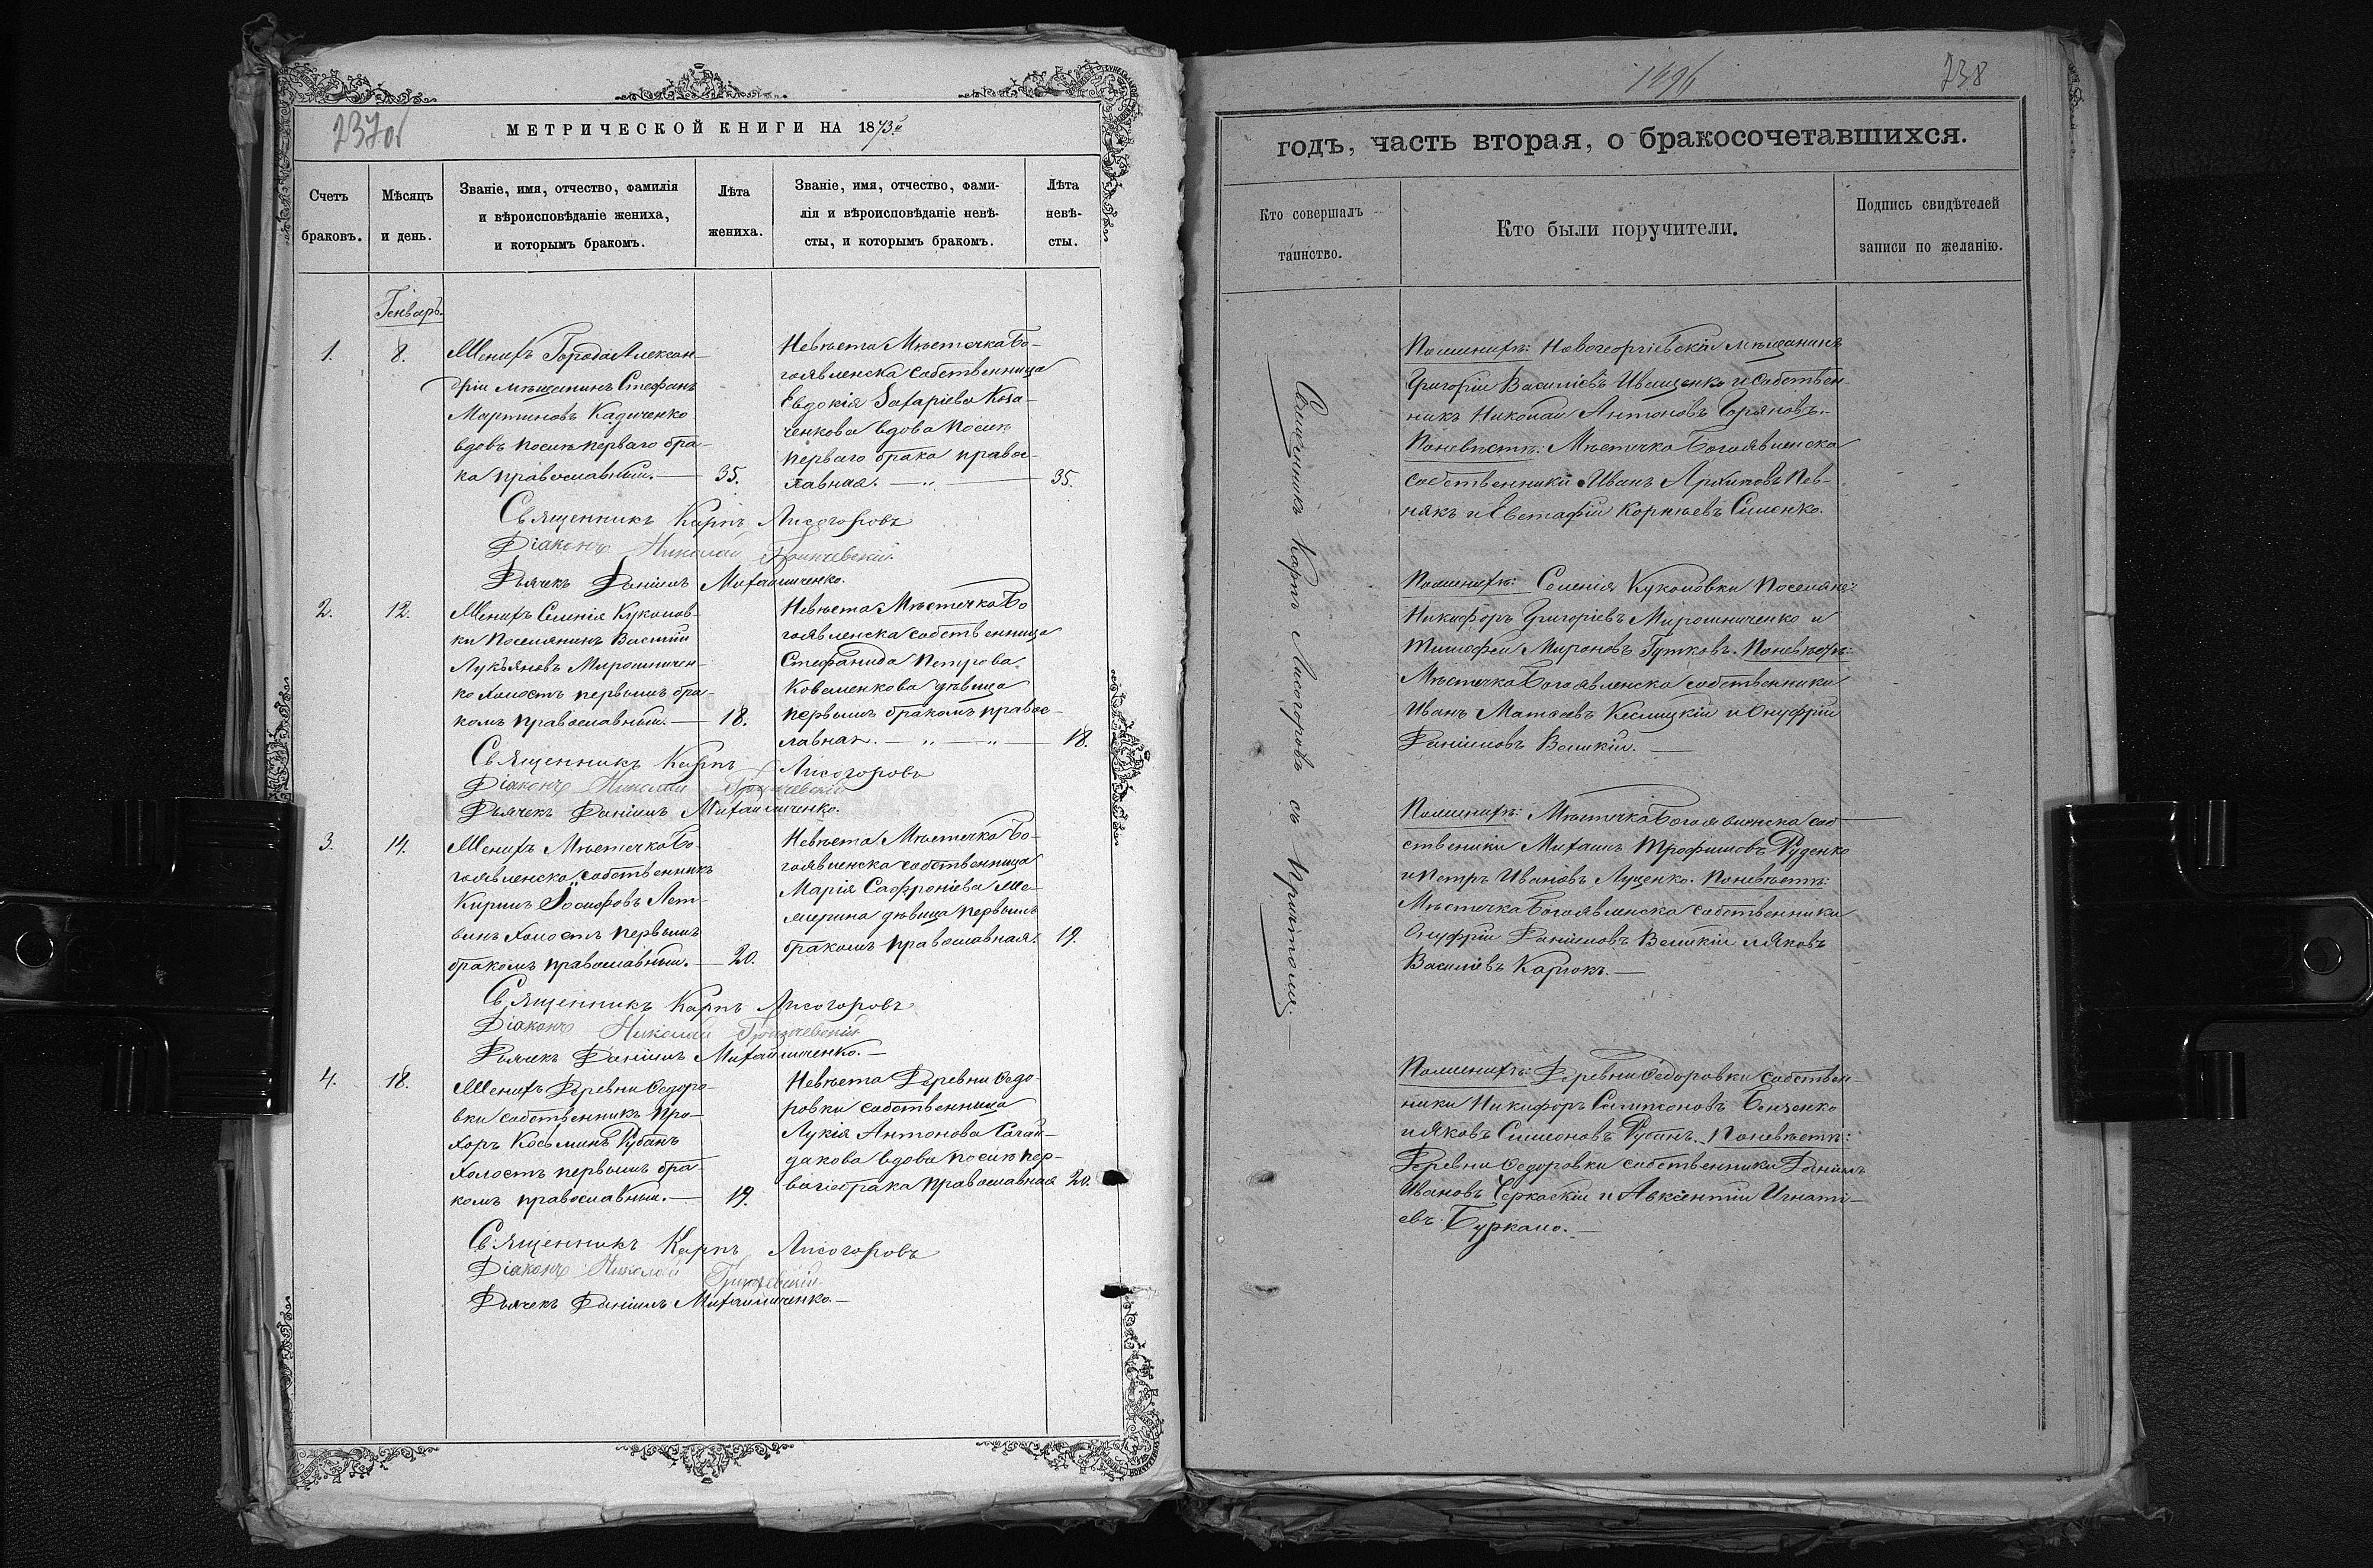 237об
МЕТРИЧЕСКОЙ КНИГИ НА 1873й
Счетъ браковъ.
Мѣсяцъ и день.
Званіе, имя, отчество, фамилія
и вѣроисповѣданіе жениха,
и которымъ бракомъ.
Лѣта жениха.
Званіе, имя, отчество, фами-
лія и вѣроисповѣданіе невѣ-
сты, и которымъ бракомъ.
Лѣта невѣ-
сты.
Генварь.
1.
8.
Женихъ Города Алексан-
дріи мѣщанинъ Стефанъ
Мартиновъ Кадиченко
вдовъ послѣ перваго бра-
ка православный. — 35.
Невѣста Мѣстечка Бо-
гоявленска собственница
Евдокія Захаріева Коза-
ченкова вдова послѣ
перваго брака правос-
лавная. — 35.
Священникъ Карпъ Лисогоровъ
Діаконъ Николай
Дьячекъ Даніилъ Михайличенко.
2.
12.
Женихъ Селенія Куколов-
ки Поселянинъ Василій
Лукъяновъ Мирошничен-
ко холостъ первымъ бра-
комъ православный. — 18.
Невѣста Мѣстечка Бо
гоявленска собственница
Стефанида Петрова
Коваленкова дѣвица
первымъ бракомъ правос-
лавная. — 18.
Священникъ Карпъ Лисогоровъ
Діаконъ Николай
Дьячекъ Даніилъ Михайличенко.
3.
14.
Женихъ Мѣстечка Бо-
гоявленска собственникъ
Кирилъ Іосифовъ Лет-
винъ холостъ первымъ
бракомъ православный. — 20.
Невѣста Мѣстечка Бо-
гоявленска собственница
Марія Сафроніева Ме-
лерина дѣвица первымъ
бракомъ православная. 19.
Священникъ Карпъ Лисогоровъ
Діаконъ Николай
Дьячекъ Даніилъ Михайличенко. —
4.
18.
Женихъ Деревни Ѳедоро-
вки собственникъ Про-
хоръ Косьминъ Рубанъ
холостъ первымъ бра-
комъ православный. — 19.
Невѣста Деревни Ѳедо-
ровки собственница
Лукія Антонова Сагай-
дакова вдова послѣ пер-
ваго брака православная 20.
Священникъ Карпъ Лисогоровъ
Діаконъ Николай
Дьячекъ Даніилъ Михайличенко. —
1496
738
годъ, часть вторая, о бракосочетавшихся.
Кто совершалъ
таинство.
Кто были поручители.
Подпись свидѣтелей
записи по желанію.
Священникъ Карпъ Лисогоровъ съ Причтомъ. —
По женихѣ: Новогеоргіевскій мѣщанинъ
Григорій Василіевъ Иващенко и собствен-
никъ Николай Антоновъ Горяновъ. —
По невѣстѣ: Мѣстечка Богоявленска
собственники Иванъ Архиповъ Пев-
някъ и Евстафій Корнѣевъ Симонко.
По женихѣ: Селенія Куколовки Поселяне:
Никифоръ Григоріевъ Мирошниченко и
Тимофей Мироновъ Гутковъ. По невѣстѣ:
Мѣстечка Богоявленска собственники
Иванъ Матѳеевъ Кеслицкій и Онуфрій
Даніиловъ Великій. —
По женихѣ: Мѣстечка Богоявленска соб
ственики Михаилъ Трофимовъ Руденко
и Петръ Ивановъ Луценко. По невѣстѣ:
Мѣстечка Богоявленска собственники
Онуфрій Даніиловъ Великій и Яковъ
Василіевъ Карюкъ. —
По женихѣ: Деревни Ѳедоровки собствен-
ники Никифоръ Сампсоновъ
и Яковъ Симеоновъ Рубанъ. По невѣстѣ:
Деревни Ѳедоровки собственники Даніилъ
Ивановъ Черкаскій и Авксентій Игнаті-
евъ Буркало. —